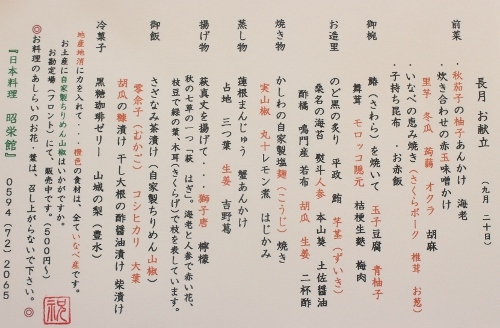 長月 お献立 (九月二十日)
前菜
・秋茄子の柚子あんかけ 海老
・炊き合わせの赤玉味噌かけ
里芋 冬瓜 蒟蒻 オクラ 胡麻
・いなべの恵み焼き(さくらポーク 椎茸 お葱)
・子持ち昆布 ・お赤飯
御椀
鰆(さわら)を焼いて 玉子豆腐 青柚子
舞茸 モロッコ隠元 桔梗生麩 梅肉
お造里
のど黒の炙り 平政 鮪 芋茎(ずいき)
桑名の海苔 熨斗人参 本山葵 土佐醤油
酢橘 鳴門産若布 胡瓜 生姜 二杯酢
焼き物
かしわの自家製塩麹(こうじ)焼き
実山椒 丸十レモン煮 はじかみ
蒸し物
蓮根まんじゅう 蟹あんかけ
占地 三つ葉 生姜 吉野葛
揚げ物
萩真丈を揚げて・・・獅子唐 檸檬
秋の七草の一つ萩(はぎ)。海老と人参で赤い花、
枝豆で緑の葉、木耳(きくらげ)で枝を表しています。
御飯
さざなみ茶漬け(自家製ちりめん山椒)
零余子(むかご) コシヒカリ 大葉
胡瓜の糠漬け 干し大根の酢醤油漬け 柴漬け
冷菓子
黒糖珈琲ゼリー 山城の梨(豊水)
地産地消に力を入れて・・・橙色の食材は、全ていなべ産です。
お土産に自家製ちりめん山椒はいかがですか。
お勘定場(フロント)にて、販売中です。(600円~)
◎お料理のあしらいのお花・葉は、召し上がらないで下さい。◎
『日本料理 昭栄館』 0594(72)2065
祝